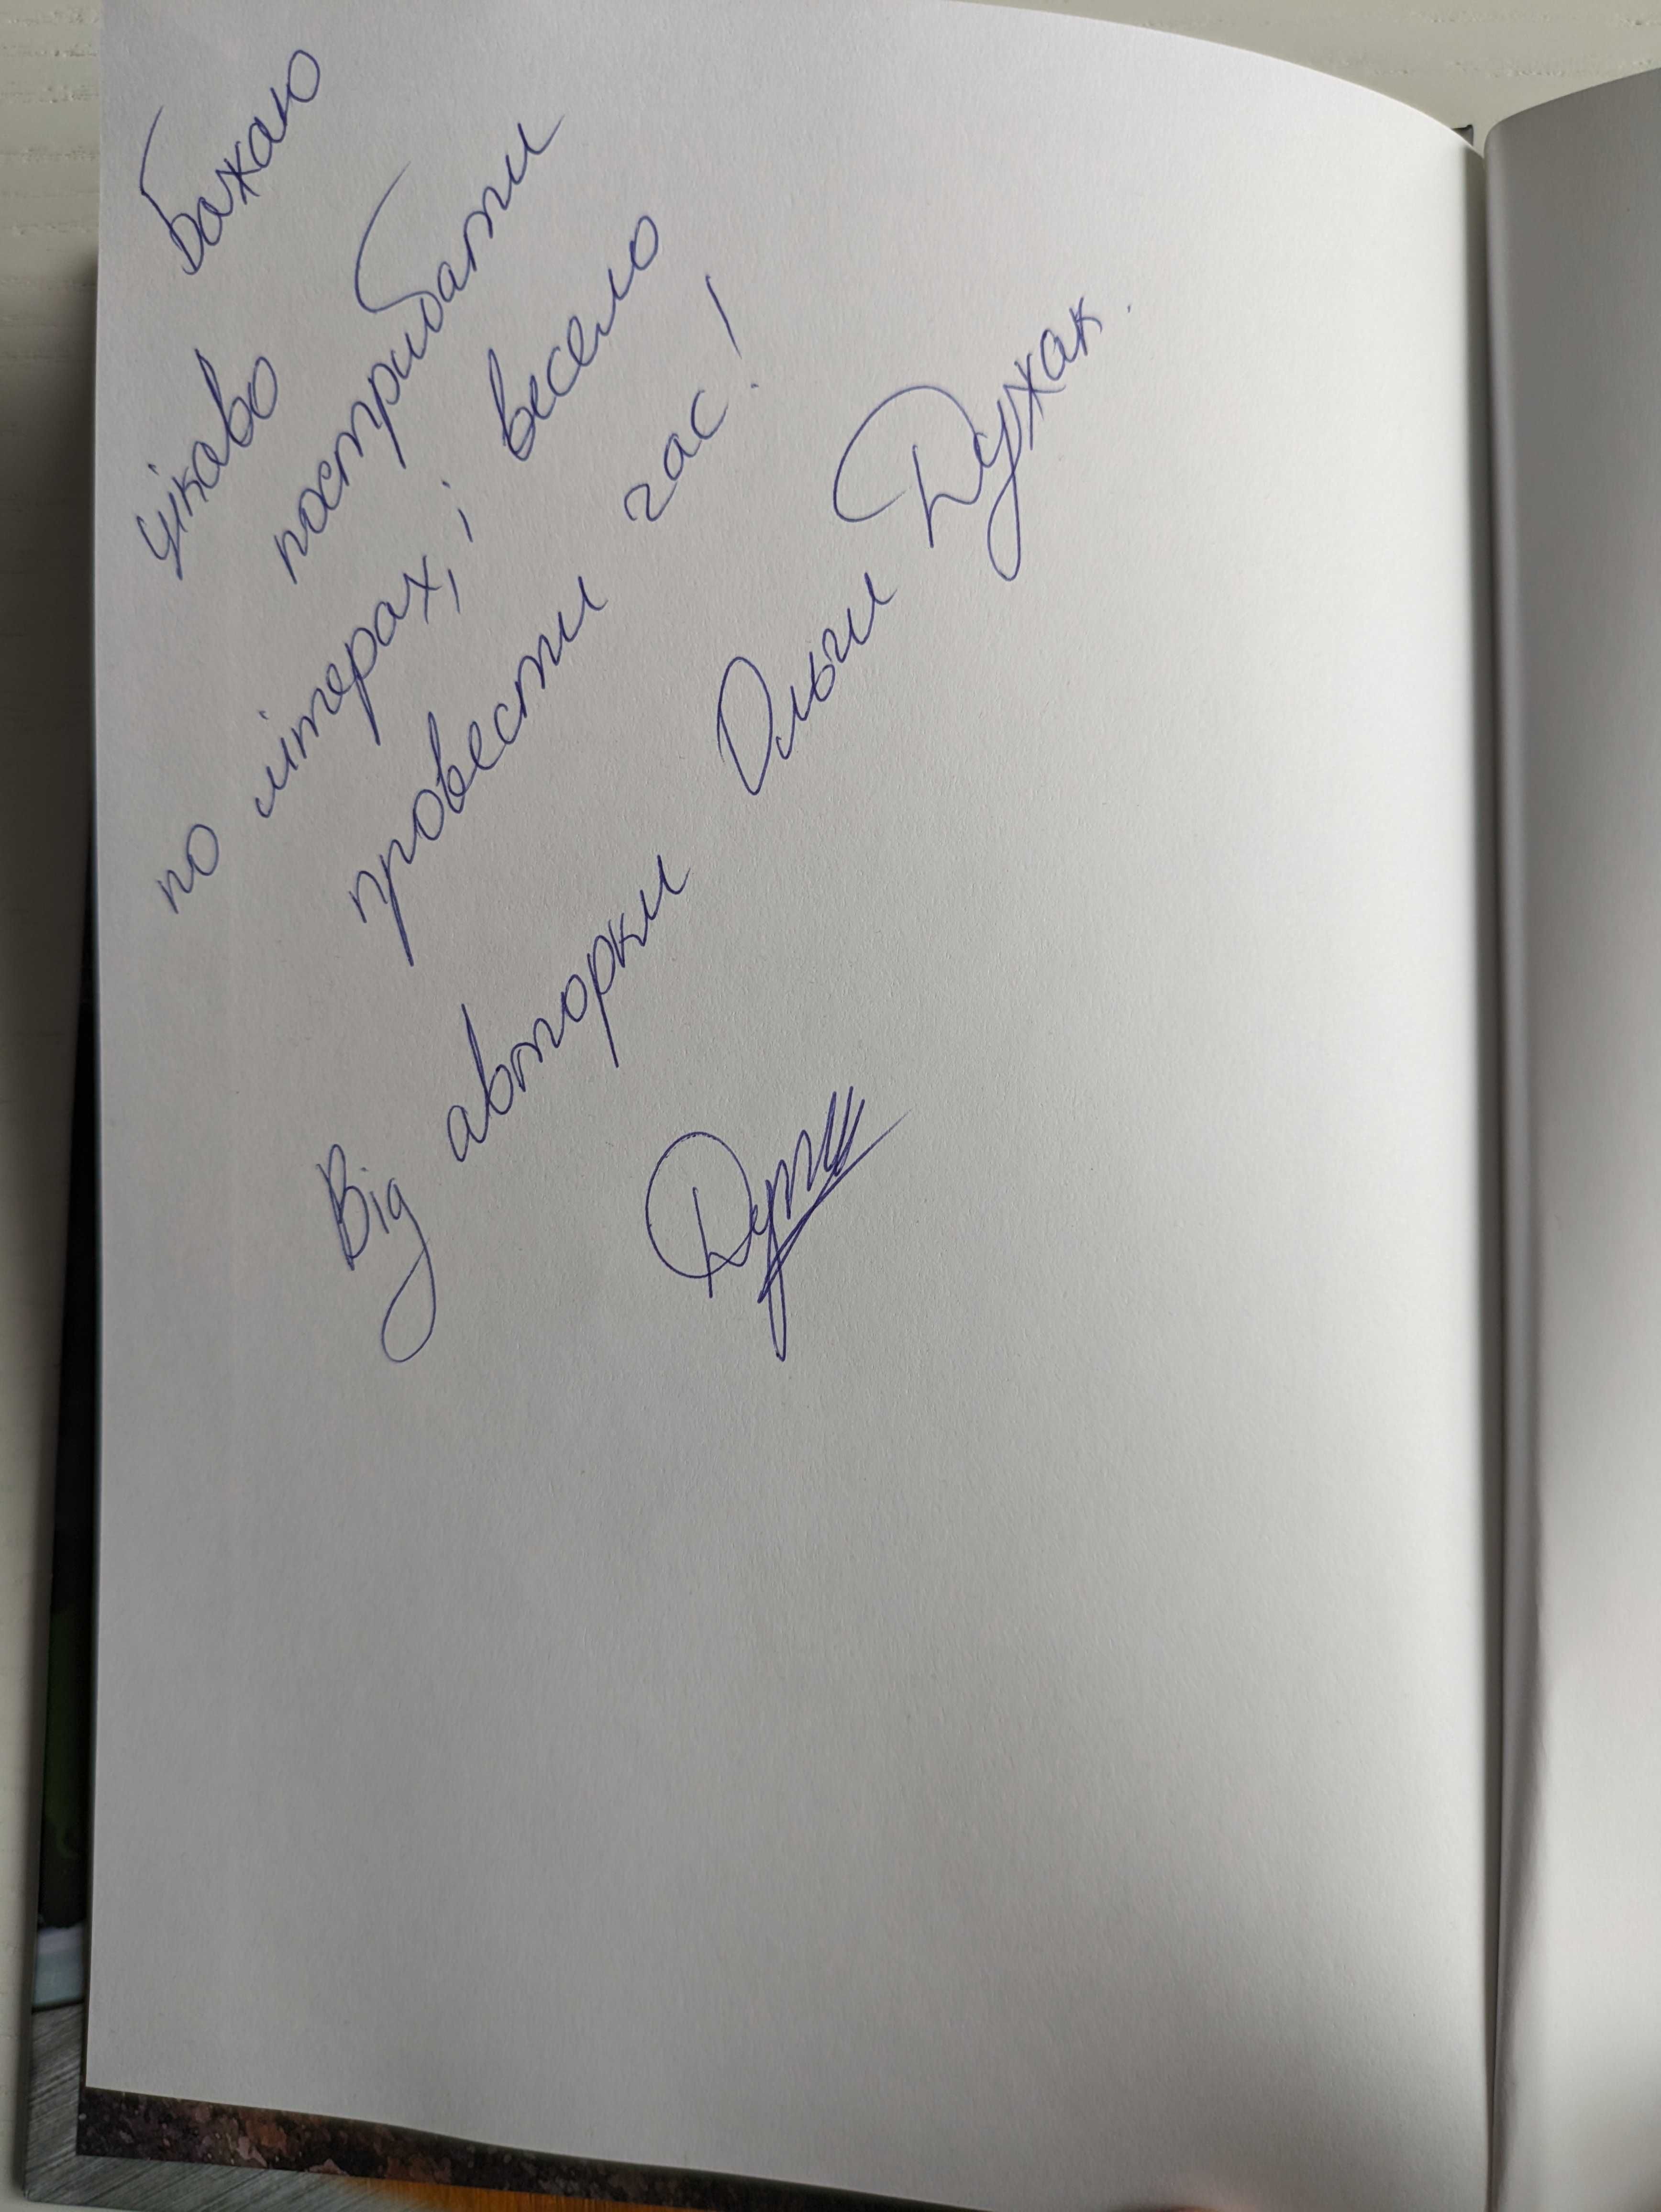 Бажаю
цікаво пострибати
по літерах, і весело
провести час!
Від авторки Ольги Дужак.